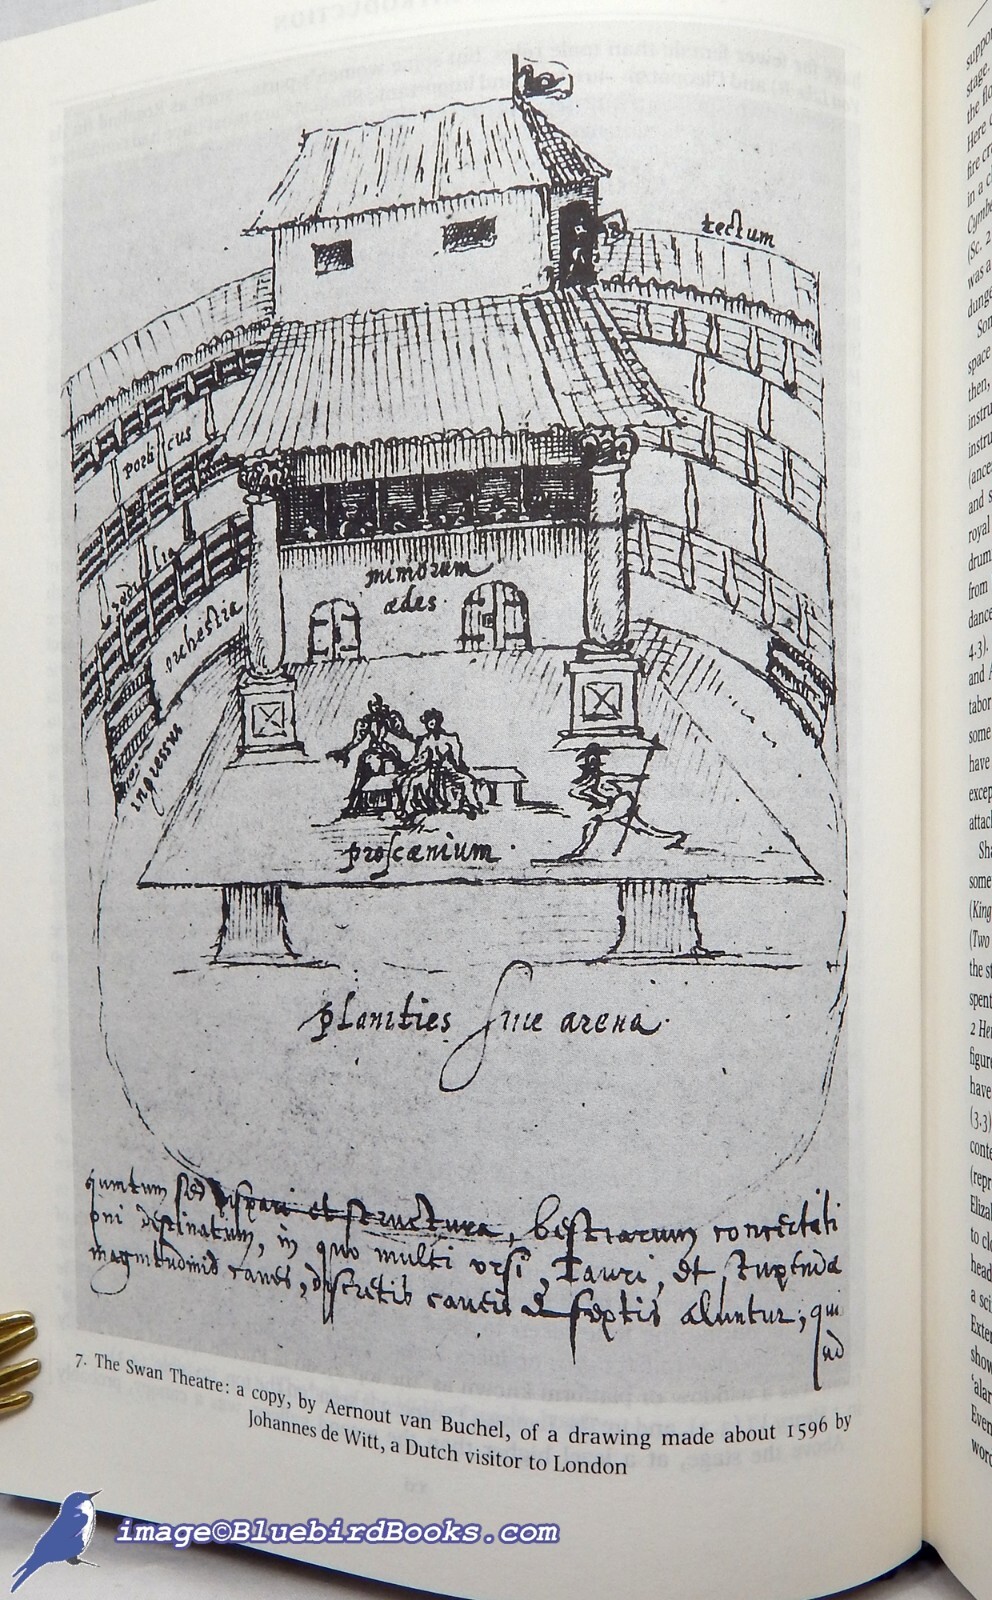 tectum
porticus
sedilia
orchestra
mimorum
ædes.
ingressus
proscænium.
planities siue arena.
quintum sed dispari et structura, bestiarum concertati
oni destinatum, in quo multi ursi, Tauri, et stupenda
magnitudinis canes, discretis caueis & septis aluntur, qui
ad
7. The Swan Theatre: a copy, by Aernout van Buchel, of a drawing made about 1596 by
Johannes de Witt, a Dutch visitor to London
image©BluebirdBooks.com
suppo
stage.
the flo
Here
fire cr
in a c
Cymbe
(Sc. 2
was a
dunge
Son
space
then,
instru
instru
(ance
and s
royal
drum
from
dance
4.3).
and A
tabor
some
have
excep
attac
Sha
some
(King
(Two
the st
spent
2 Hen
figure
have
(3.3)
conte
(repr
Elizal
to cl
head
a sci
Exter
show
'alar
Even
word